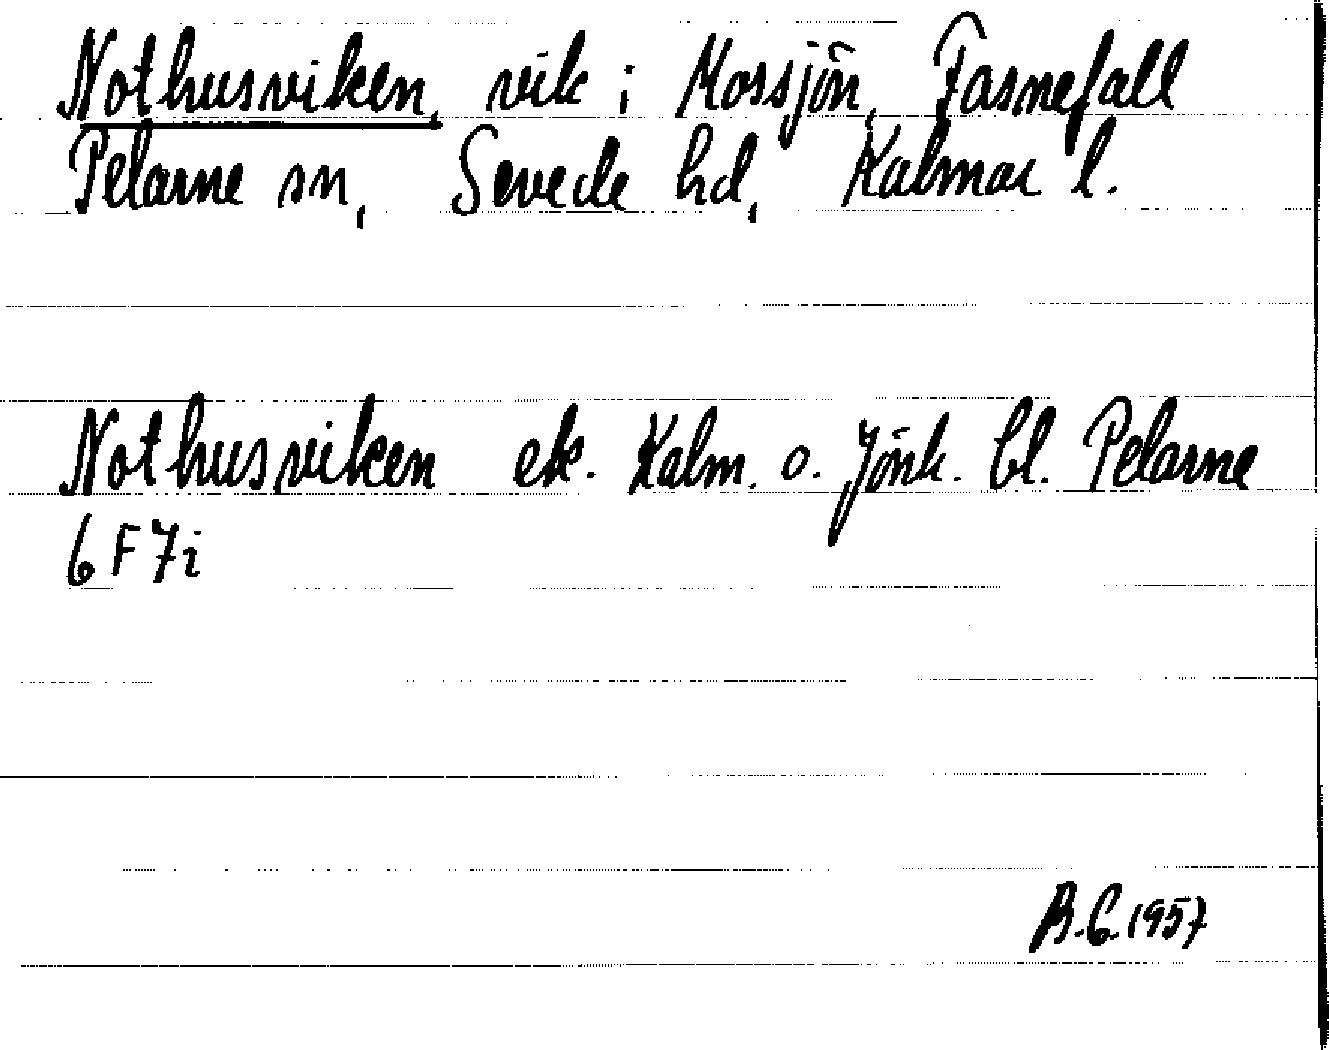 Nothusviken, vik i Mossjön, Fasnefall
Pelarne sn, Sevede hd, Kalmar l.
Nothusviken ek. Kalm. o. Jönk. bl. Pelarne
6 F 7i
B.G. 1957